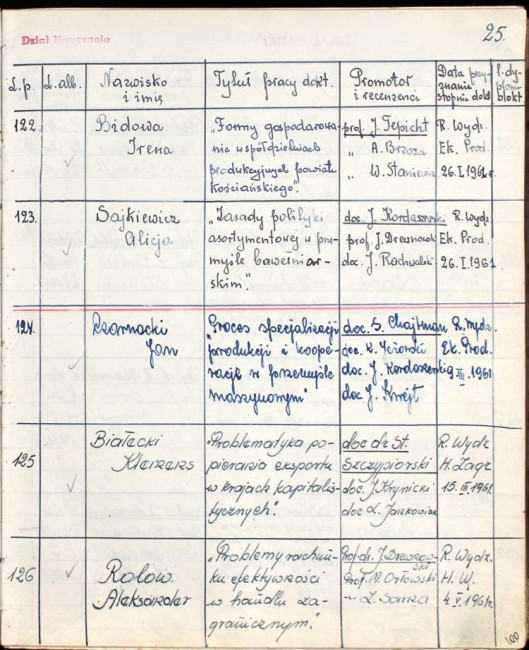 25.
Dział Nauczania
L.p.
L. alb.
Nazwisko
i imię
Tytuł pracy dokt.
Promotor
i recenzenci
Data przy-
znania
stopni. dokt
l. dy-
plomu
dokt
122.
Bidowa
Irena
„Formy gospodarowa-
nia w spółdzielniach
produkcyjnych powiatu
Kościańskiego".
prof. J. Tepicht
„ A. Brzoza
„ W. Staniewicz
R. Wydz.
Ek. Prod.
26.I.1961r.
123.
Sajkiewicz
Alicja
„Zasady polityki
asortymentowej w prze-
myśle bawełniar-
skim".
doc. J. Kordaszewski
prof. J. Drewnowski
doc. J. Radwalski
R. Wydz.
Ek. Prod.
26.I.1961
124.
Czarnocki
Jan
"Proces specjalizacji
produkcji i koope-
racji w przemyśle
maszynowym"
doc. S. Chajtman
doc. K. Jeżowski
doc. J. Kordaszewski
doc J. Krejt
R. Wydz.
Ek. Prod.
9.III.1961
125
Białecki
Klemens
„Problematyka po-
pierania eksportu
w krajach kapitalis-
tycznych".
doc dr St.
Szczypiorski
doc. J. Krynicki
doc Z.
R. Wydz
H. Zagr
15.III.1961
126
Rolow
Aleksander
„Problemy rachun-
ku efektywności
w handlu za-
granicznym."
Prof. dr. J. Drewnow-
ski
Prof. M. Orłowski
„ Z.
R. Wydz.
H. W.
4.V.1961r.
100